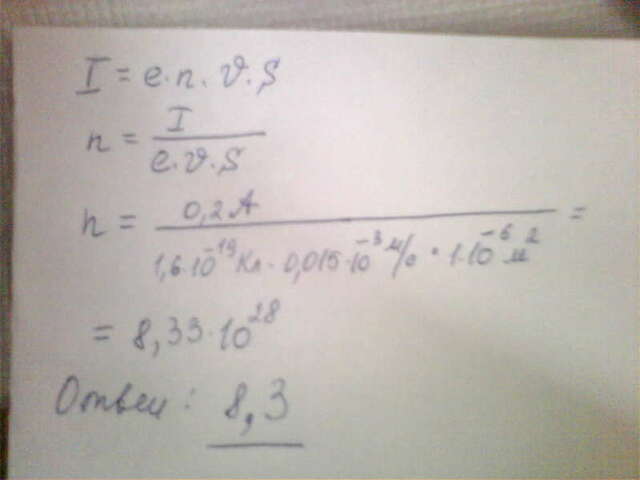 I = e·n·v·S
n = I / e·v·S
n = 0,2 А / 1,6·10⁻¹⁹ Кл · 0,015·10⁻³ м/с · 1·10⁻⁶ м² =
= 8,33·10²⁸
Ответ: 8,3